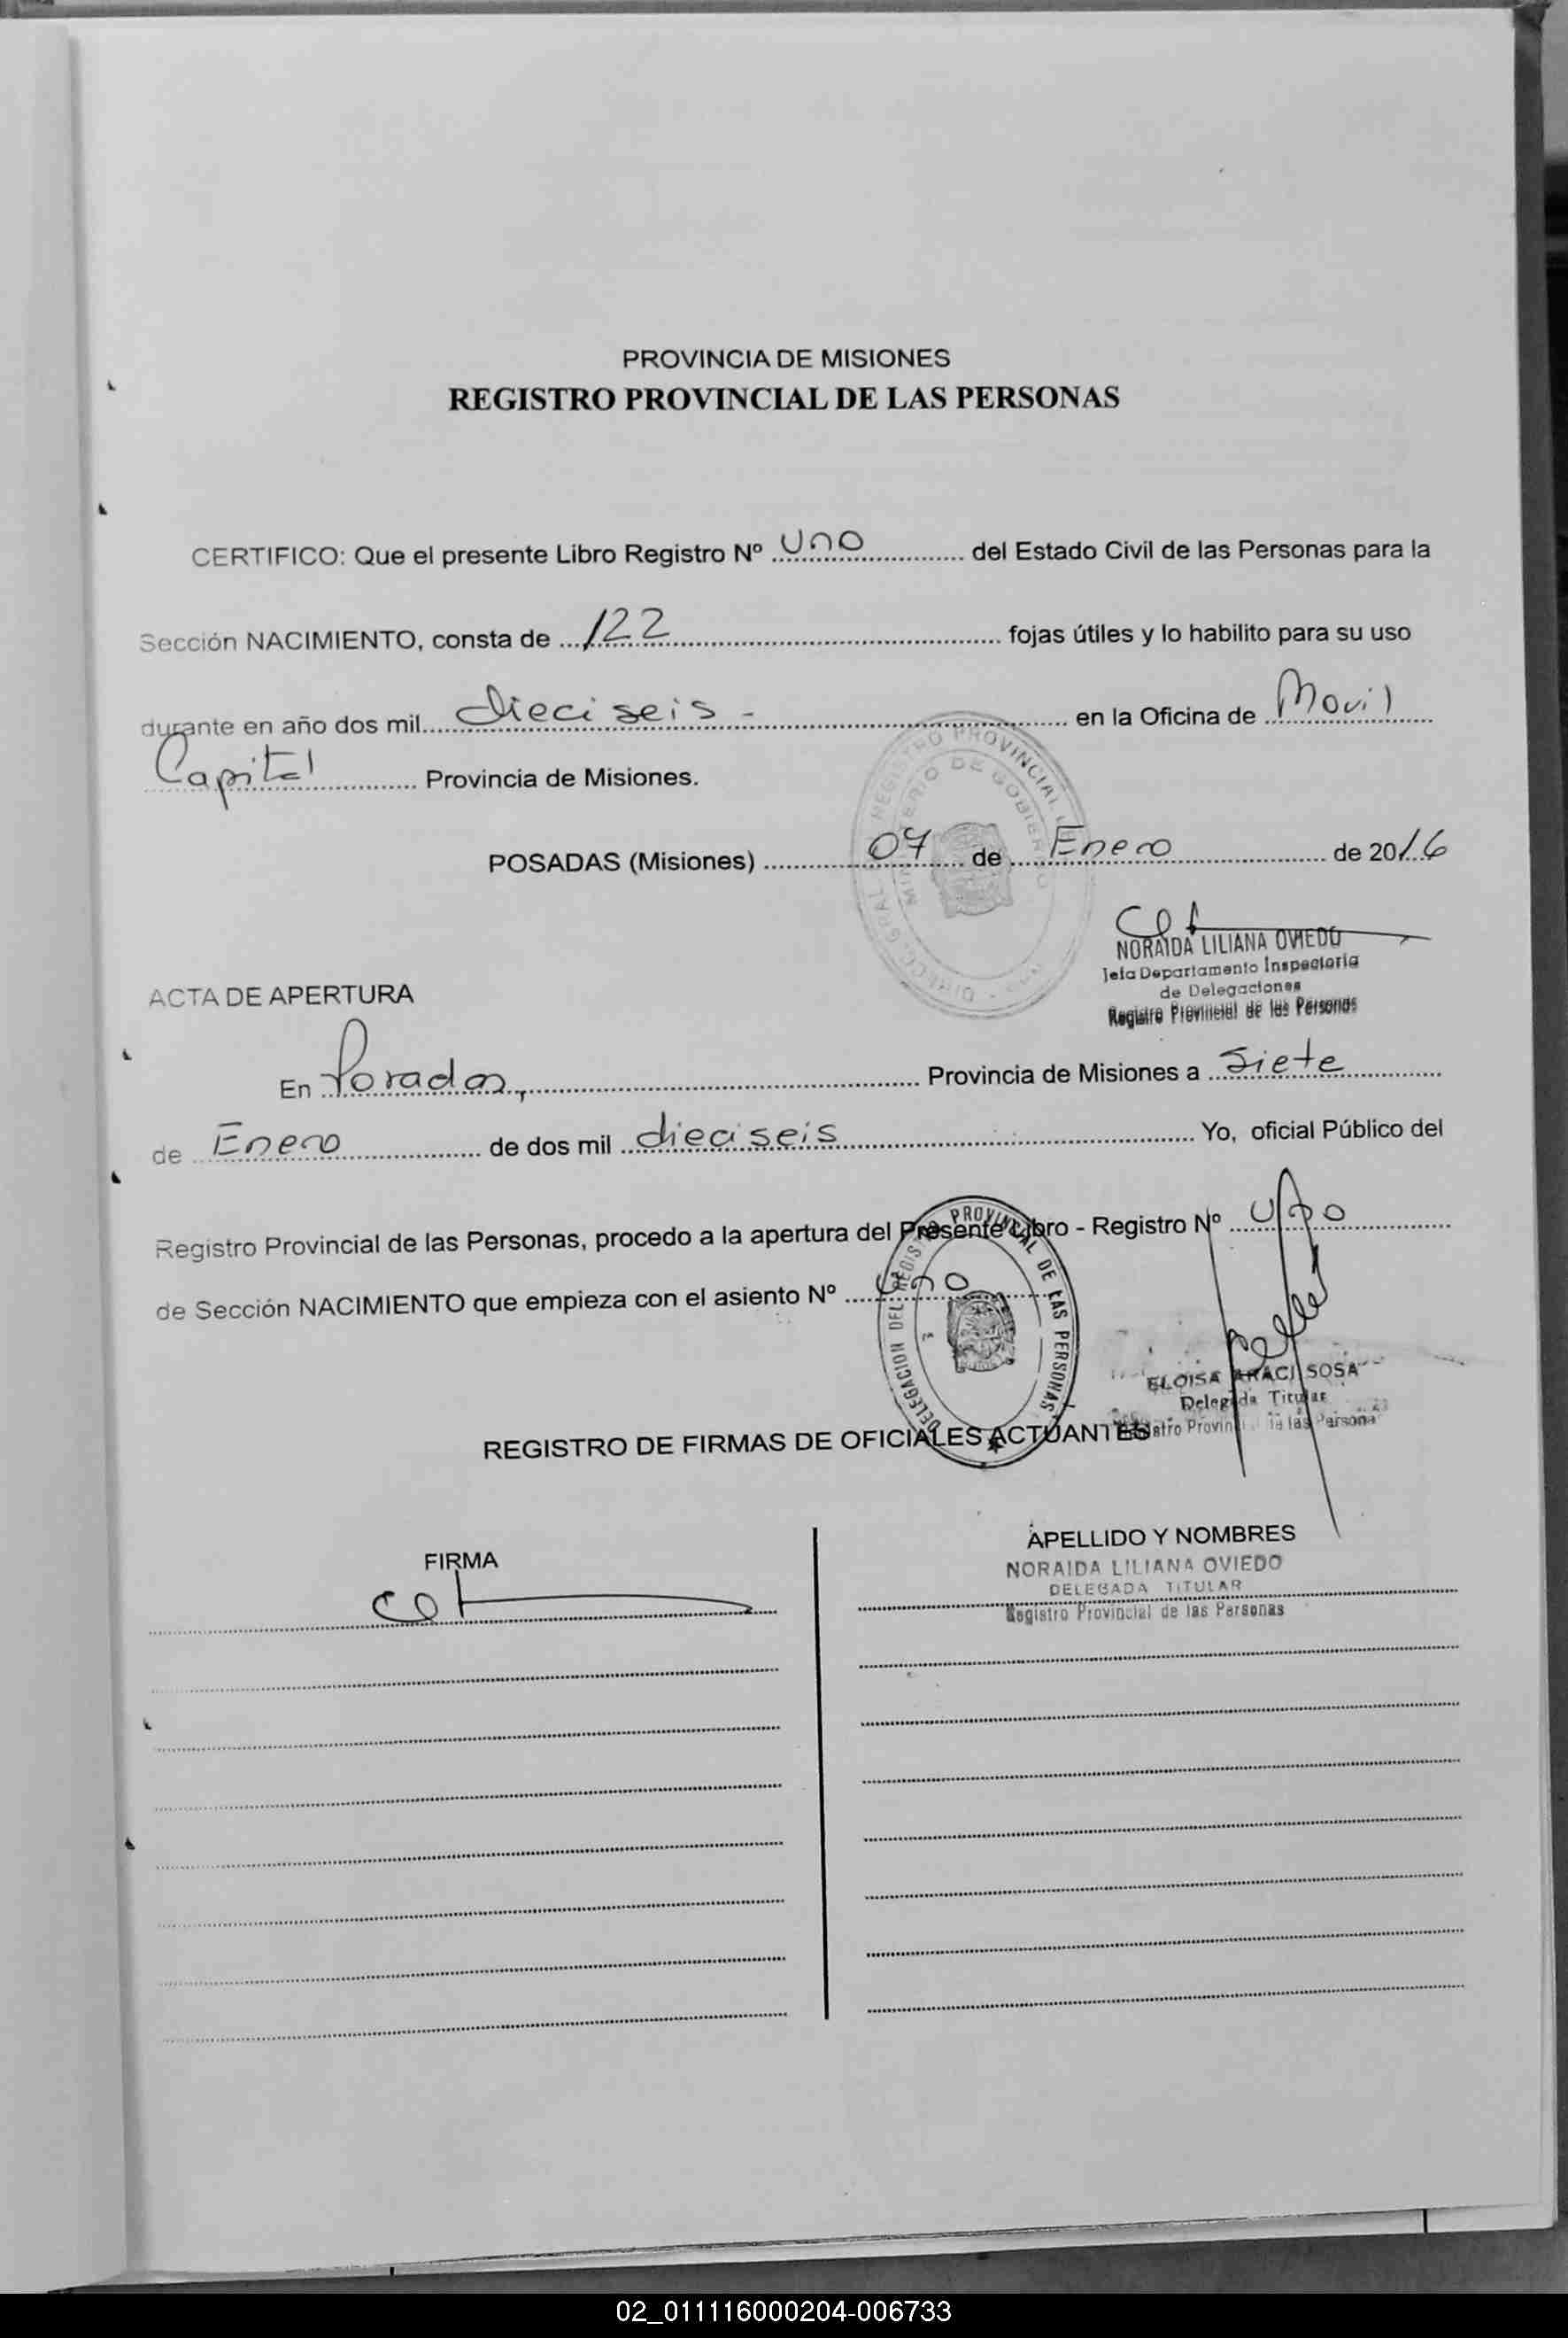 PROVINCIA DE MISIONES
REGISTRO PROVINCIAL DE LAS PERSONAS
CERTIFICO: Que el presente Libro Registro Nº Uno del Estado Civil de las Personas para la
Sección NACIMIENTO, consta de 122 fojas útiles y lo habilito para su uso
durante en año dos mil dieciseis - en la Oficina de Movil
Capital Provincia de Misiones.
POSADAS (Misiones) 07 de Enero de 2016
NORAIDA LILIANA OVIEDO
Jefa Departamento Inspectoria
de Delegaciones
Registro Provincial de las Personas
ACTA DE APERTURA
En Posadas, Provincia de Misiones a Siete
de Enero de dos mil dieciseis Yo, oficial Público del
Registro Provincial de las Personas, procedo a la apertura del Presente Libro - Registro Nº Uno
de Sección NACIMIENTO que empieza con el asiento Nº Uno
DELEGACION DEL REGISTRO PROVINCIAL DE LAS PERSONAS
ELOISA ARACI SOSA
Delegada Titular
Registro Provincial de las Personas
REGISTRO DE FIRMAS DE OFICIALES ACTUANTES
FIRMA
APELLIDO Y NOMBRES
NORAIDA LILIANA OVIEDO
DELEGADA TITULAR
Registro Provincial de las Personas
02_011116000204-006733